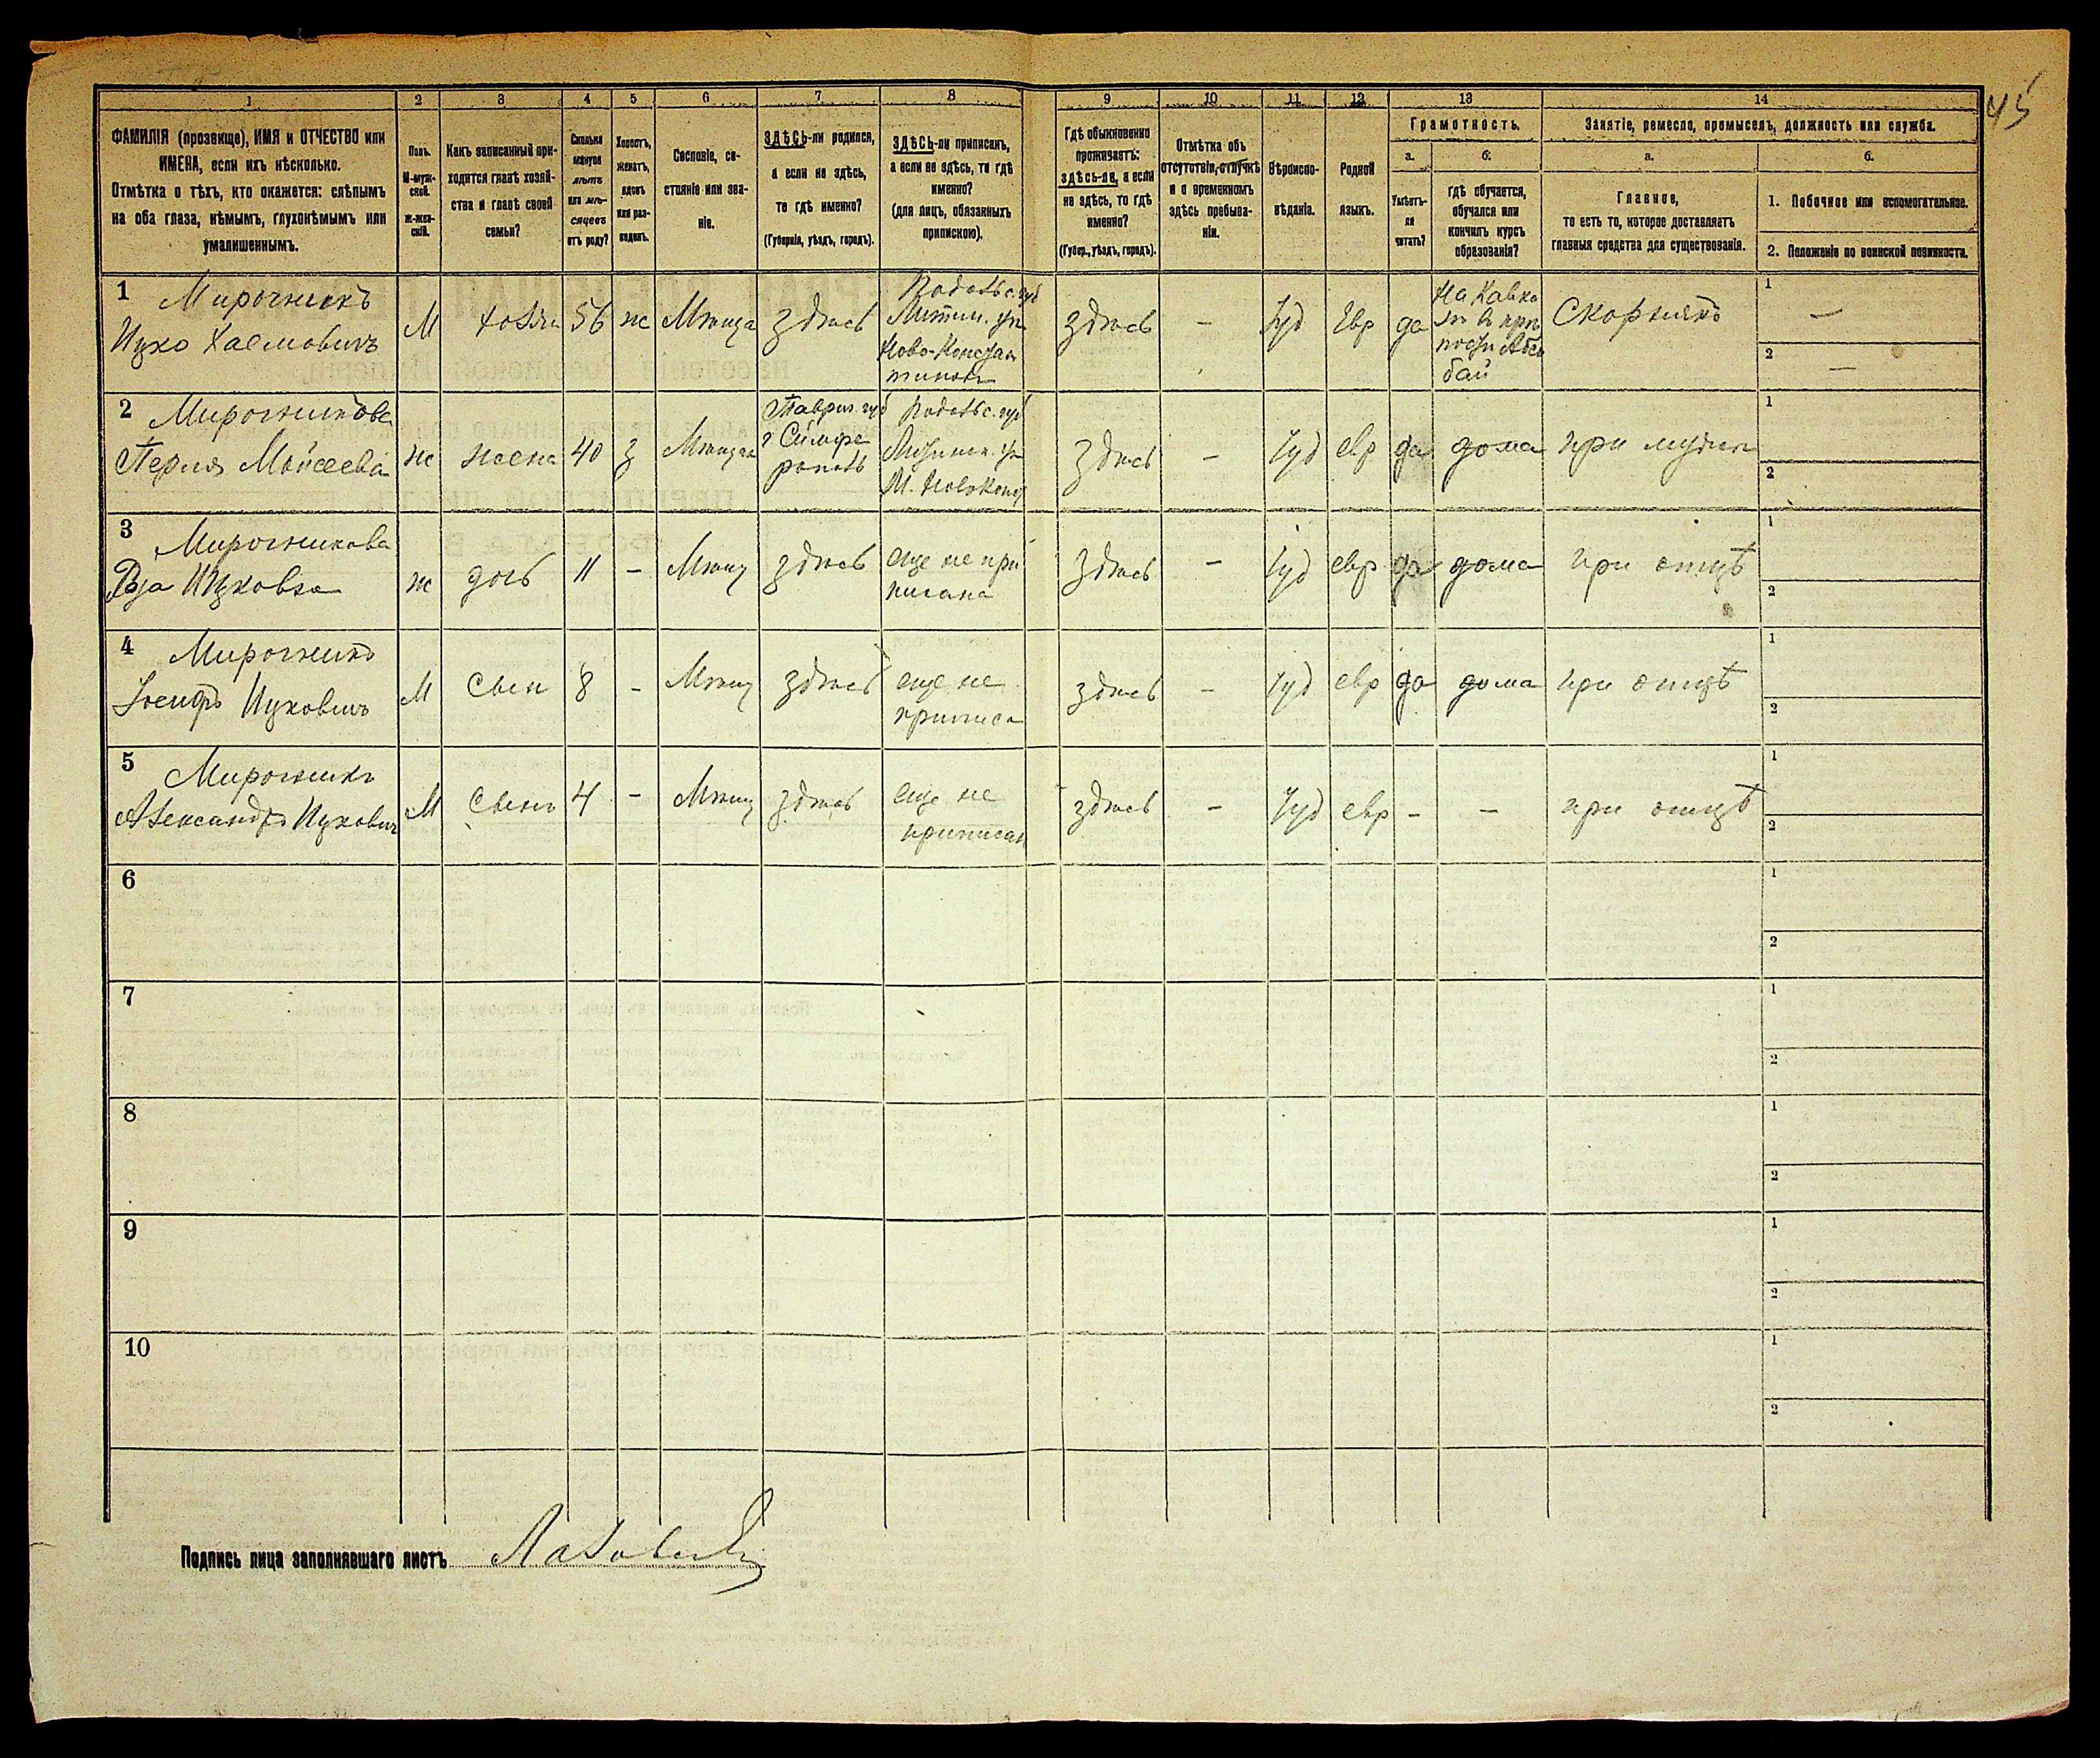 45
1 2 3 4 5 6 7 8 9 10 11 12 13 14
ФАМИЛІЯ (прозвище), ИМЯ и ОТЧЕСТВО или
ИМЕНА, если ихъ нѣсколько.
Отмѣтка о тѣхъ, кто окажется: слѣпымъ
на оба глаза, нѣмымъ, глухонѣмымъ или
умалишеннымъ.
Полъ.
М-муж-
ской.
Ж-жен-
скій.
Какъ записанный при-
ходится главѣ хозяй-
ства и главѣ своей
семьи?
Сколько
минуло
лѣтъ
или мѣ-
сяцевъ
отъ роду?
Холостъ,
женатъ,
вдовъ
или раз-
веденъ.
Сословіе, со-
стояніе или зва-
ніе.
ЗДѢСЬ-ли родился,
а если не здѣсь,
то гдѣ именно?
(Губернія, уѣздъ, городъ).
ЗДѢСЬ-ли приписанъ,
а если не здѣсь, то гдѣ
именно?
(для лицъ, обязанныхъ
припискою).
Гдѣ обыкновенно
проживаетъ:
здѣсь-ли, а если
не здѣсь, то гдѣ
именно?
(Губер., уѣздъ, городъ).
Отмѣтка объ
отсутствіи, отлучкѣ
и о временномъ
здѣсь пребыва-
ніи.
Вѣроиспо-
вѣданіе.
Родной
языкъ.
Грамотность.
а.
Умѣетъ-
ли
читать?
б.
гдѣ обучается,
обучался или
кончилъ курсъ
образованія?
Занятіе, ремесло, промыселъ, должность или служба.
а.
Главное,
то есть то, которое доставляетъ
главныя средства для существованія.
б.
1. Побочное или вспомогательное.
2. Положеніе по воинской повинности.
1 Мирочникъ
Ицко Хаемовичъ
М
56
ж
здѣсь
Подольс. губ
Литин. уѣ
Ново-Констан
тинов
здѣсь
–
Іуд
Евр
да
На Кавка
зѣ в крѣ
пости
бай
Скорнякъ
1 —
2 —
2 Мирочникова
Перля Моисеева
ж
жена
40
з
Таврич. губ
г Симфе
рополь
Подольс. губ
М. Новоконс
здѣсь
–
Іуд
евр
да
дома
при мужѣ
1
2
3 Мирочникова
Ицковна
ж
дочь
11
–
Мѣщ
здѣсь
еще не при
писана
здѣсь
–
Іуд
евр
да
дома
при отцѣ
1
2
4 Мирочникъ
Іосифъ Ицковичъ
М
Сын
8
–
Мѣщ
здѣсь
еще не
приписа
здѣсь
–
Іуд
евр
да
дома
при отцѣ
1
2
5 Мирочникъ
Александръ Ицкович
М
Сынъ
4
–
Мѣщ
здѣсь
еще не
приписан
здѣсь
–
Іуд
евр
–
–
при отцѣ
1
2
6
1
2
7
1
2
8
1
2
9
1
2
10
1
2
Подпись лица заполнявшаго листъ